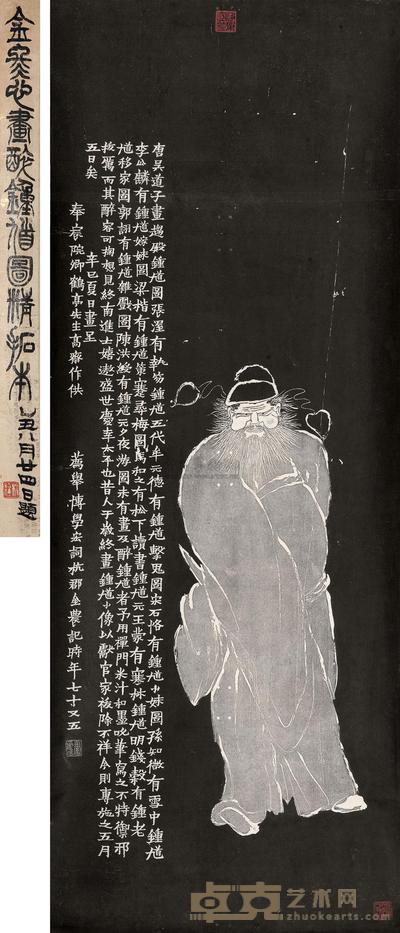 金冬心畫醉鍾馗圖精拓本 英八月廿四日題
唐吳道子畫趨殿鍾馗圖張渥有執笏鍾馗五代牟元德有鍾馗擊鬼圖宋石恪有鍾馗小妹圖孫知微有雪中鍾馗
李公麟有鍾馗嫁妹圖梁楷有鍾馗策蹇尋梅圖馬和之有松下讀書鍾馗元王蒙有寒林鍾馗明錢穀有鍾老
馗移家圖郭詡有鍾馗雜戲圖陳洪綬有鍾馗元夕夜游圖未有畫及醉鍾馗者予用禪門米汁和墨吮筆寫之不特禦邪
拔厲而其醉容可掬想見終南進士嬉遨盛世慶幸太平也昔人于歲終畫鍾馗小像以獻官家祓除不祥今則專施之五月
五日矣
辛巳夏日畫呈
奉宸院卿鶴亭先生高齋作供
薦舉博學宏詞杭郡金農記時年七十又五
卓克艺术网
zhuokearts.com